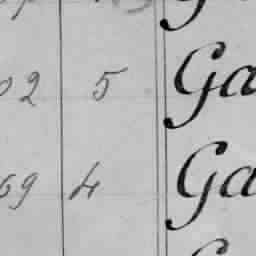 02 5 Ga
69 4 Ga